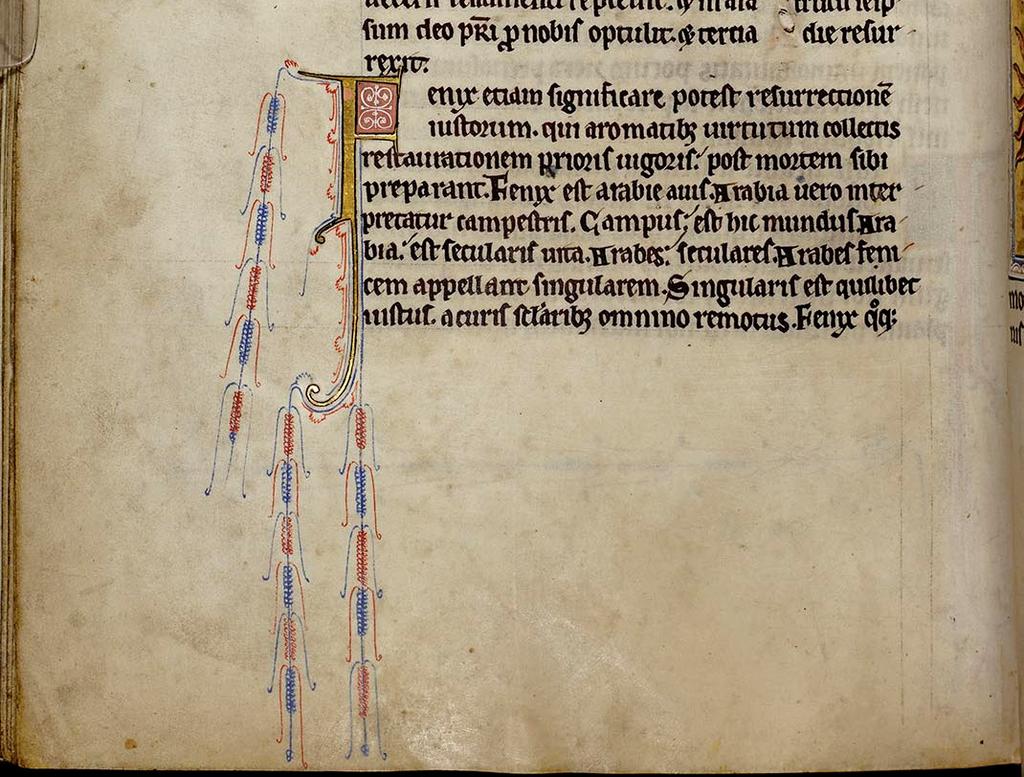 sum deo pr̄i ꝓ nobis optulit. & tertia die resur
rexit:
Fenyx etiam significare potest resurrectionē
iustorum. qui aromatibꝫ uirtutum collectis
restaurationem prioris uigoris: post mortem sibi
preparant. Fenyx est arabie auis. Arabia uero inter
pretatur campestris. Campus, est hic mundus. Ara
bia: est secularis uita. Arabes: seculares. Arabes feni
cem appellant singularem. Singularis est quilibet
iustus. a curis sc̄laribꝫ omnino remotus. Fenyx qͦqꝫ